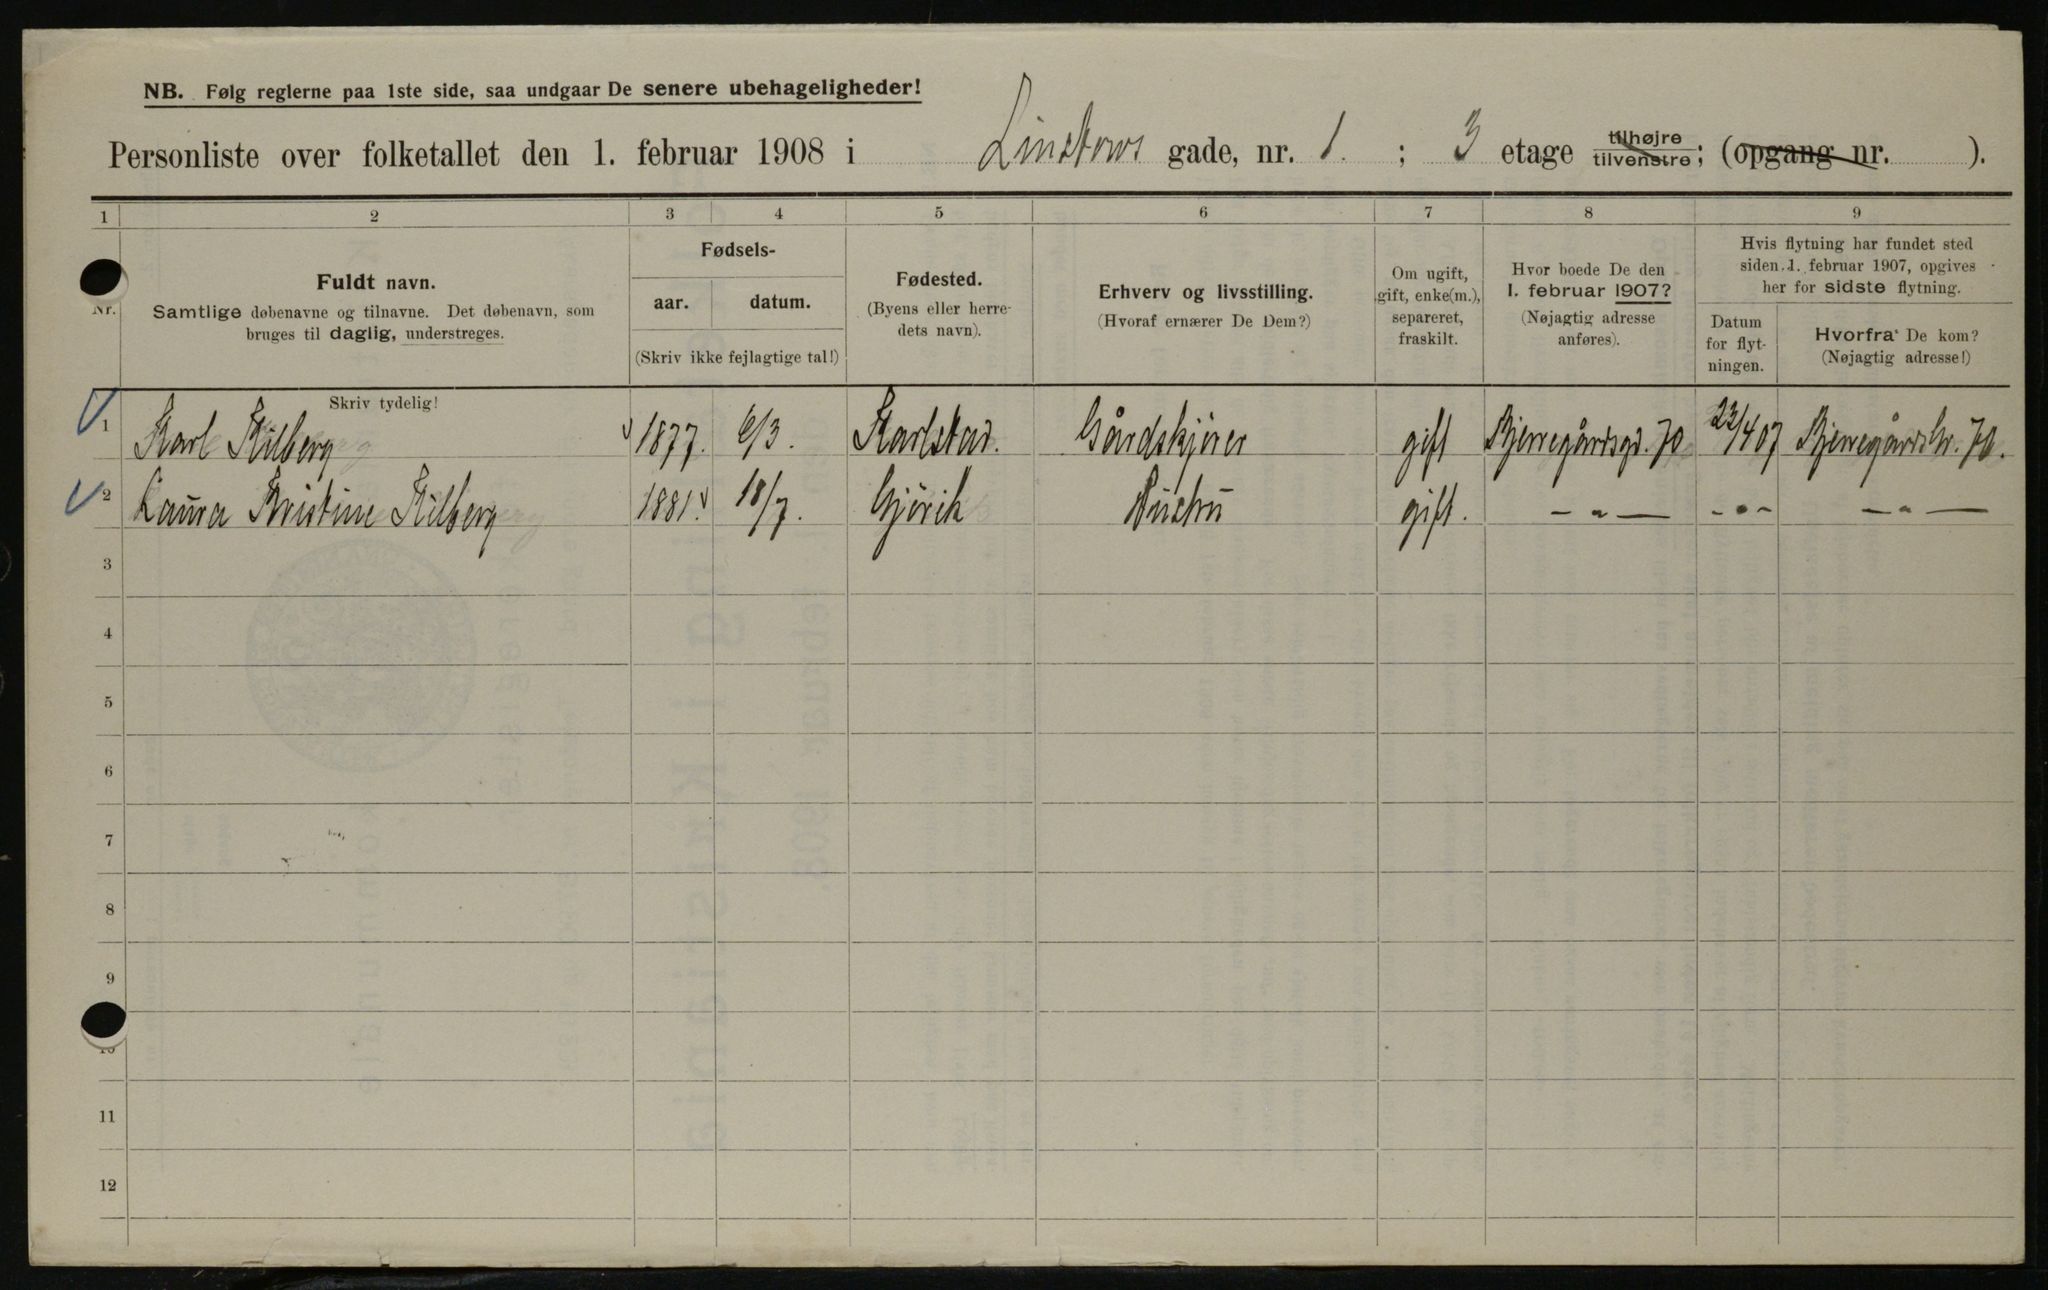 NB. Følg reglerne paa 1ste side, saa undgaar De senere ubehageligheder!
Personliste over folketallet den 1. februar 1908 i Linstows gade, nr. 1. ; 3 etage tilhøjre tilvenstre; (opgang nr. ).
1 2 3 4 5 6 7 8 9
Nr.
Fuldt navn.
Samtlige døbenavne og tilnavne. Det døbenavn, som
bruges til daglig, understreges.
Fødsels-
aar. datum.
(Skriv ikke fejlagtige tal!)
Fødested.
(Byens eller herre-
dets navn).
Erhverv og livsstilling.
(Hvoraf ernærer De Dem?)
Om ugift,
gift, enke(m.),
separeret,
fraskilt.
Hvor boede De den
1. februar 1907?
(Nøjagtig adresse
anføres).
Hvis flytning har fundet sted
siden 1. februar 1907, opgives
her for sidste flytning.
Datum
for flyt-
ningen.
Hvorfra De kom?
(Nøjagtig adresse!)
Skriv tydelig!
1 Karl Kilberg 1877. 6/3. Karlstad. Gårdskjører gift Bjerregårdsgd. 70 23/4 07 Bjerregårdsbr. 70.
2 Laura Kristine Kilberg 1881. 18/7. Gjövik Hustru gift. — " — - " - — " —
3
4
5
6
7
8
9
10
11
12